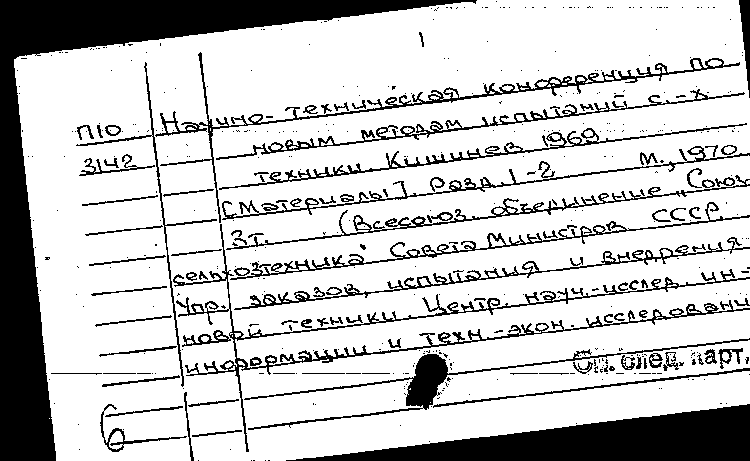 1
П10 Научно-техническая конференция по
3142 новым методам испытаний с.-х.
техники. Кишинев. 1969.
[Материалы]. Разд. 1-2 М., 1970.
3т. (Всесоюз. объединение „Союз-
сельхозтехника" Совета Министров СССР.
Упр. заказов, испытания и внедрения
новой техники. Центр. науч.-исслед. ин-
информации и техн.-экон. исследовани
См. след. карт.
6